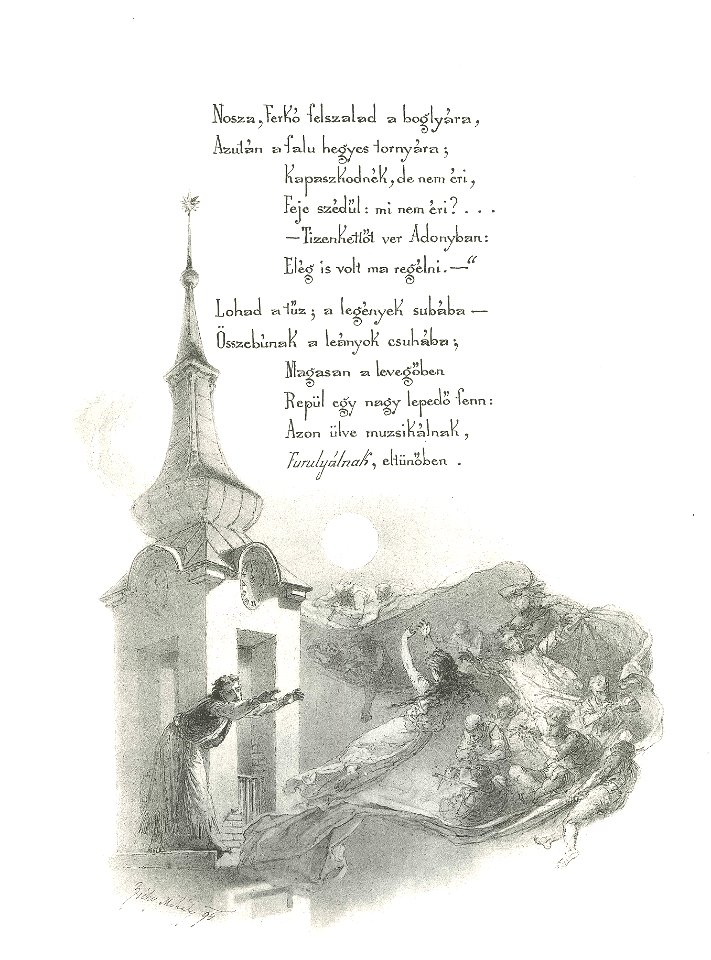 Nosza, Ferkó felszalad a boglyára,
Azután a falu hegyes tornyára;
Kapaszkodnék, de nem éri,
Feje szédül: mi nem éri? . . .
—Tizenkettőt ver Adonyban:
Elég is volt ma regélni.—“
Lohad a tűz; a legények subába —
Összebúnak a leányok csuhába;
Magasan a levegőben
Repül egy nagy lepedő fenn:
Azon ülve muzsikálnak,
Furulyálnak, eltünőben .